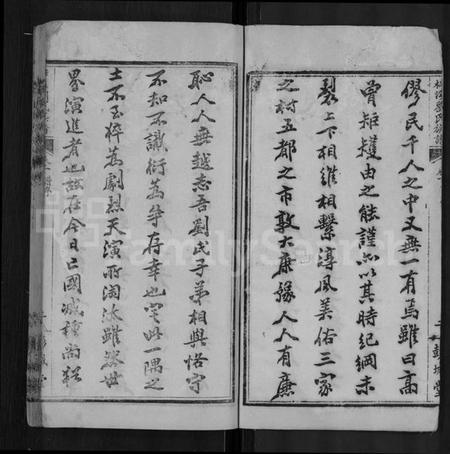 僇民千人之中又無一有焉雖曰高
曾矩矱由之能謹亦以其時紀綱未
裂上下相維相繫淳風美俗三家
之村五都之市敦大廉讓人人有廉
恥人人無越志吾劉氏子弟相與恪守
不知不識衍為爭存幸也定此一隅之
士不至猝為劇烈天演所淘汰雖然世
界演進者也茲在今日亡國滅種尚犹
彭城堂
FamilySearch